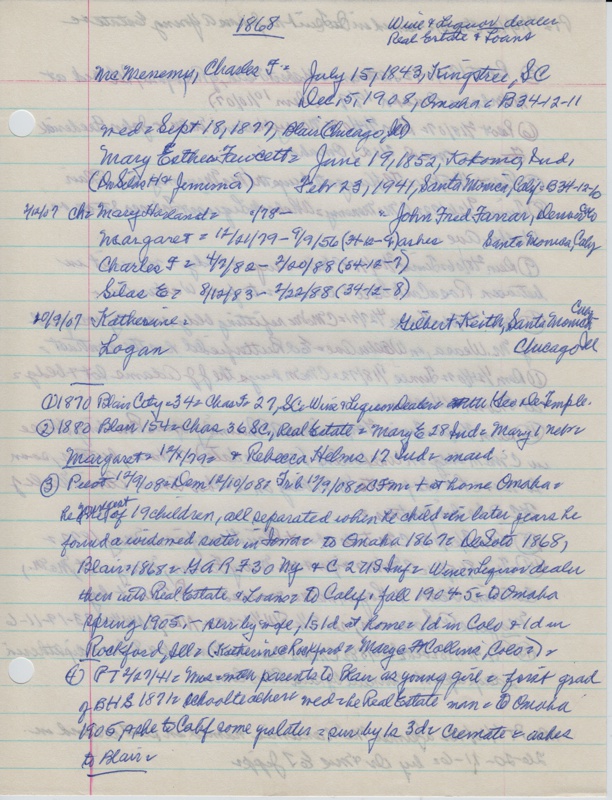 1868 Wine & Liquor dealer
Real Estate & Loans
McMenemy, Charles F = July 15, 1843, Kingstree, SC
Dec 15, 1908, Omaha = B34-12-11
med = Sept 18, 1877, Blair (Chicago, Ill)
Mary Esther Fawcett = June 19, 1852, Kokomo, Ind,
(Dr Silas H & Jemima) Feb 23, 1941, Santa Monica, Calif = B34-12-10
7/12/07 Ch = Mary Harland = /78 - = John Fred Farrar, Denver
Margaret = 12/21/79 - 9/9/56 (34-12-9) ashes Santa Monica, Calif
Charles F = 4/7/82 - 2/20/88 (34-12-7)
Silas E = 8/12/83 - 2/22/88 (34-12-8)
10/9/07 Katherine = Gilbert Keith, Santa Monica Calif
Logan Chicago Ill
① 1870 Blair City = 34 = Chas F = 27, SC = Wine & Liquor Dealer = Geo DeTemple.
② 1880 Blair 154 = Chas 36 SC, Real Estate = Mary E 28 Ind = Mary 1 neb =
Margaret = 12/1/79 = & Rebecca Helms 17 Ind = maid
③ Pilot 12/9/08 = Dem 12/10/08 = Trib 12/9/08 = CFM = + at home Omaha =
he youngest of 19 children, all separated when he child = in later years he
found a widowed sister in Iowa = to Omaha 1867 = DeSoto 1868,
Blair = 1868 = GAR F30 Ny & C 27 Inf = Wine & Liquor dealer
then into Real Estate & Loans = to Calif = fall 1904-5 = to Omaha
spring 1905, - surv by wife, 1s 1d at home = 1d in Colo & 1d in
Rockford, Ill = (Katherine = Rockford = Mary = Collins, Colo) =
④ PT 2/27/41 = Mrs = with parents to Blair as young girl = first grad
of BHS 1871 = school teacher = wed = he Real Estate man = to Omaha
1905 & she to Calif some yrs later = surv by 1s 3d = Cremate = ashes
to Blair =